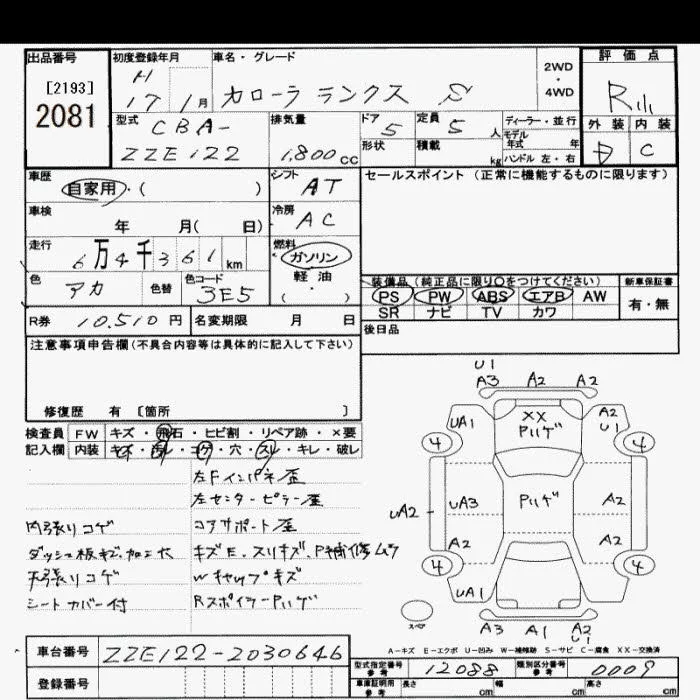 出品番号
[2193]
2081
初度登録年月
H
17 1月
車名・グレード
カローラ ランクス S
2WD
・
4WD
評価点
R
外装 内装
C
型式
CBA-
ZZE122
排気量
1,800cc
ドア 5
形状
定員 5 人
積載 kg
ディーラー・並行
モデル
年式 年
ハンドル 左・右
車歴
自家用・( )
シフト AT
セールスポイント(正常に機能するものに限ります)
車検
年 月( 日)
冷房 AC
走行
6万4千361km
燃料
ガソリン
軽油・
( )
色 アカ
色替
色コード
3E5
装備品(純正品に限り○をつけてください)
PS PW ABS エアB AW
SR ナビ TV カワ
新車保証書
有・無
R券 10,510円
名変期限 月 日
後日品
注意事項申告欄(不具合内容等は具体的に記入して下さい)
修復歴 有 [箇所 ]
検査員 FW キズ・飛石・ヒビ割・リペア跡・×要
記入欄 内装 キズ・汚レ・コゲ・穴・スレ・キレ・破レ
左Fインパネ歪
左センターピラー歪
内張りコゲ コアサポート歪
ダッシュ板キズ、加工大 キズE、スリキズ、P補修ムラ
天張りコゲ Wキャップキズ
シートカバー付 RスポイラーPハゲ
U1
A3 A2 A2
UA1 XX Pハゲ A2 U1
4 4
UA2 UA3 Pハゲ A2
A2 A2
4 4
UA1
スペア
A3 A1 A2 U2
A-キズ E-エクボ U-凹み W-補修跡 S-サビ C-腐食 XX-交換済
車台番号 ZZE122-2030646
登録番号
型式指定番号 参考 12088
類別区分番号 参考 0009
車庫証明用 参考 長さ cm 幅 cm 高さ cm